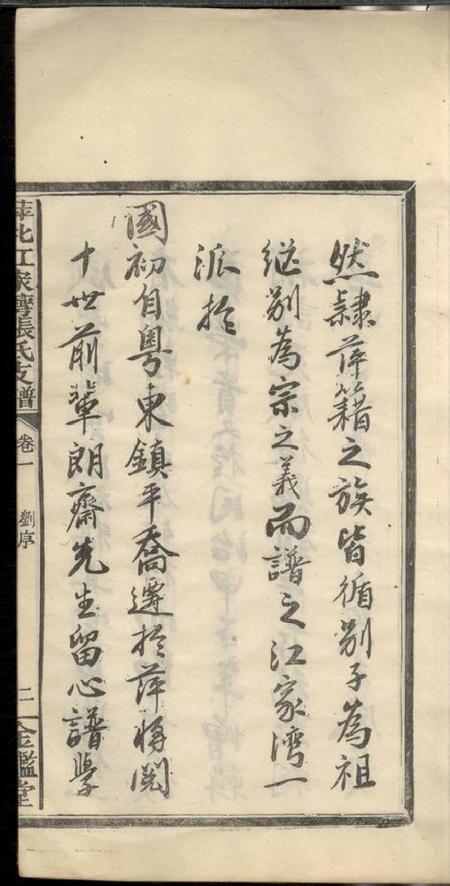 然隸萍籍之族皆循別子為祖
繼別為宗之義而譜之江家灣一
派於
國初自粵東鎮平喬遷於萍將閱
十世前輩朗齋先生留心譜學
萍北江家灣張氏支譜 卷一 劉序 二 金鑑堂